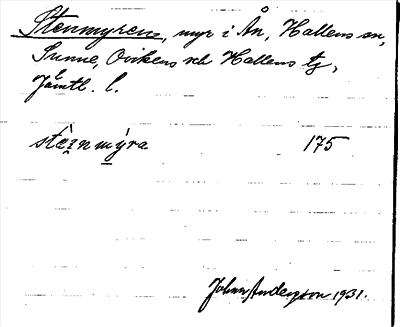 Stenmyren, myr i Ån, Hallens sn,
Sunne, Ovikens och Hallens tg,
Jämtl. l.
stäɪnmýra 175
Johan Anderzon 1931.